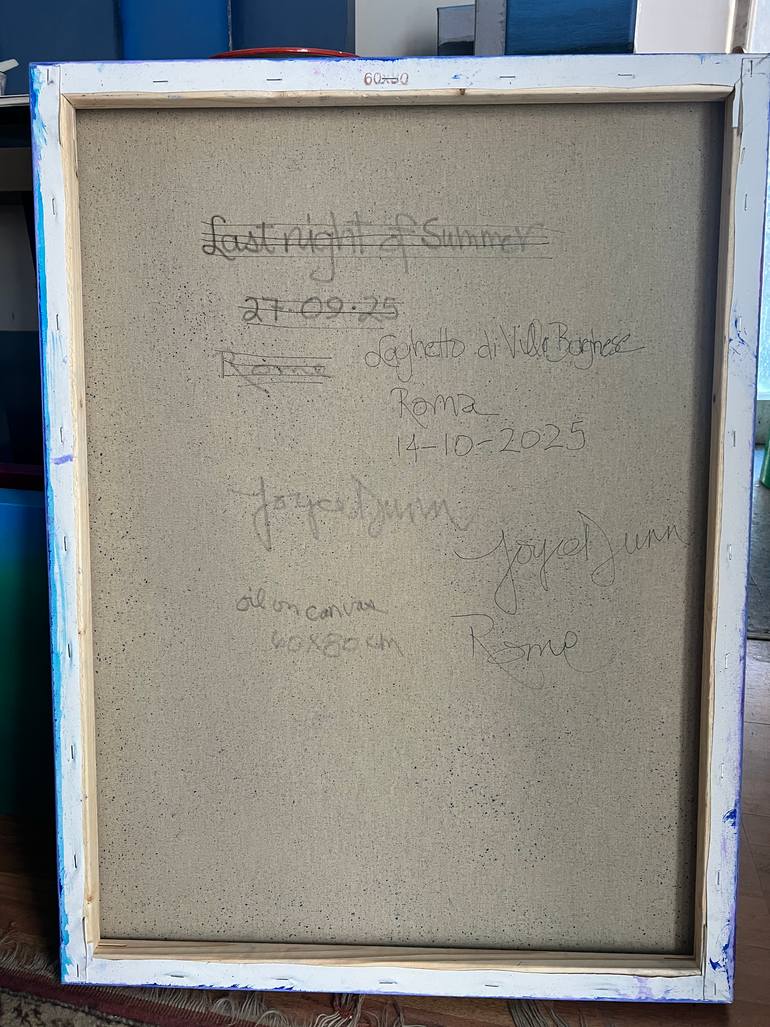 60x80
Last night of Summer
27.09.25
Rome
Laghetto di Villa Borghese
Roma
14-10-2025
Joyce Dunn
Joyce Dunn
oil on canvas
60x80 cm
Rome